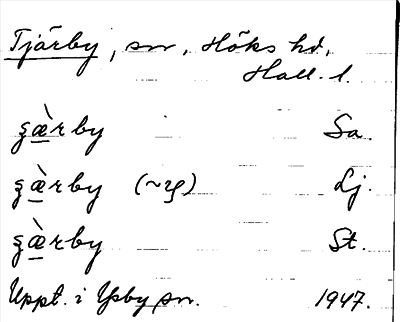 Tjärby, sn, Höks hd,
Hall. l.
ʂæ̀rby Sa.
ʂæ̀rby Lj.
ʂæ̀rby St.
Uppt. i Ysby sn. 1947.